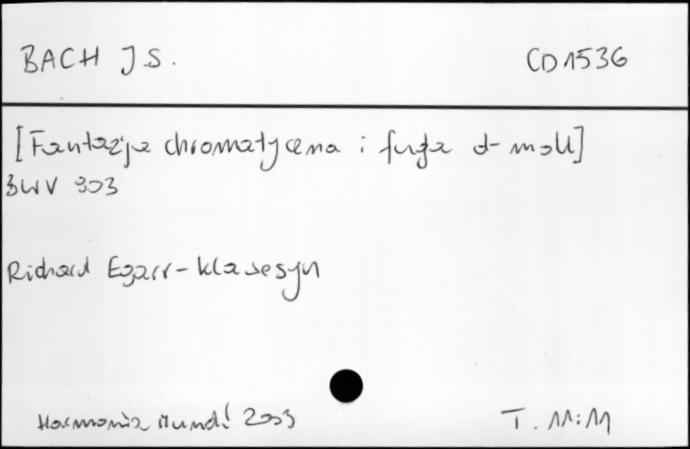 BACH J.S. CD 1536
[Fantazja chromatyczna i fuga d-moll]
BWV 903
Richard Egarr - klawesyn
Harmonia Mundi 2003 T. 11:11